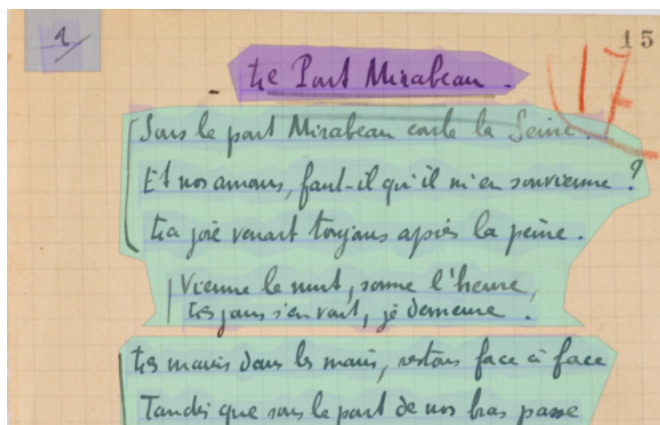 1
15
17
Le Pont Mirabeau.
Sous le pont Mirabeau coule la Seine.
Et nos amours, faut-il qu'il m'en souvienne ?
La joie venait toujours après la peine.
Vienne la nuit, sonne l'heure,
Les jours s'en vont, je demeure.
Les mains dans les mains, restons face à face
Tandis que sous le pont de nos bras passe